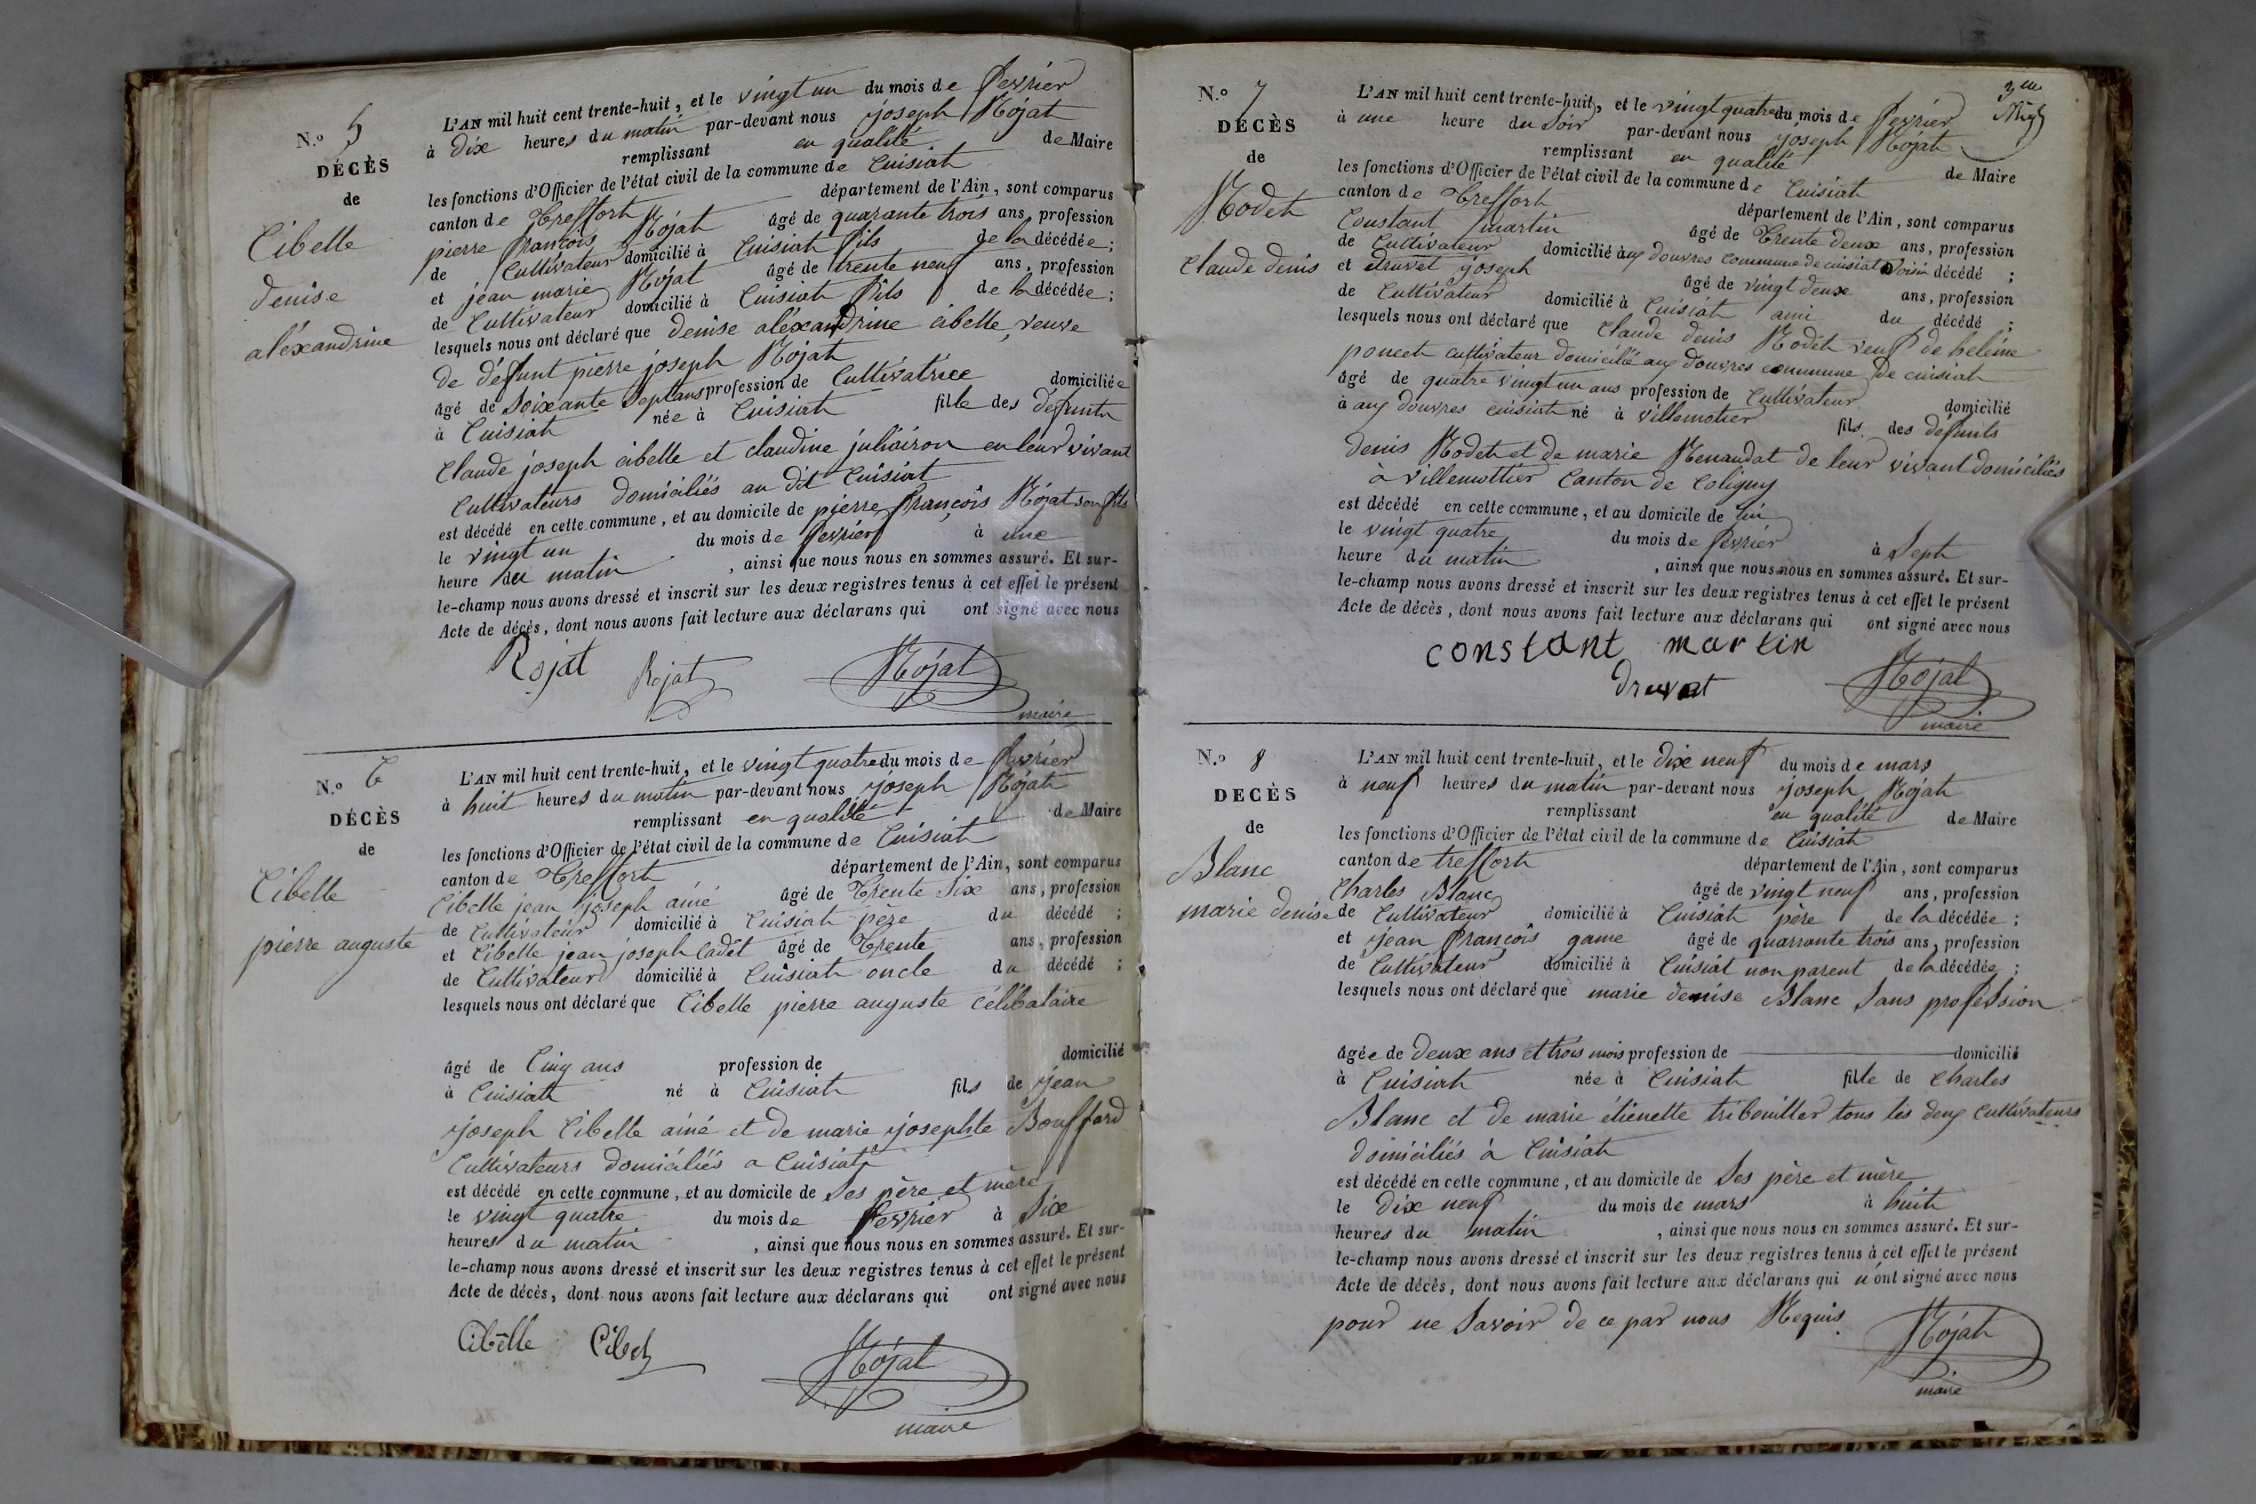 N.o 5
DÉCÈS
de
Cibelle
denise
aléxandrine
L'AN mil huit cent trente-huit, et le vingt un du mois de fevrier
à dix heures du matin par-devant nous joseph Rojat
remplissant en qualité de Maire
les fonctions d'Officier de l'état civil de la commune de Cuisiat
canton de Treffort département de l'Ain, sont comparus
pierre françois Rojat âgé de quarante trois ans, profession
de Cultivateur domicilié à Cuisiat fils de la décédée;
et jean marie Rojat âgé de trente neuf ans, profession
de Cultivateur domicilié à Cuisiat fils de la décédée;
lesquels nous ont déclaré que denise aléxandrine cibelle, veuve
de défunt pierre joseph Rojat
âgé de soixante sept ans profession de Cultivatrice domiciliée
à Cuisiat née à Cuisiat fille des défunts
Claude joseph cibelle et claudine juliairon en leur vivant
Cultivateurs domiciliés au dit Cuisiat
est décédé en cette commune, et au domicile de pierre françois Rojat son fils
le vingt un du mois de fevrier à une
heure du matin, ainsi que nous nous en sommes assuré. Et sur-
le-champ nous avons dressé et inscrit sur les deux registres tenus à cet effet le présent
Acte de décès, dont nous avons fait lecture aux déclarans qui ont signé avec nous
Rojat Rojat Rojat
maire
N.o 6
DÉCÈS
de
Cibelle
pierre auguste
L'AN mil huit cent trente-huit, et le vingt quatre du mois de fevrier
à huit heures du matin par-devant nous joseph Rojat
remplissant en qualité de Maire
les fonctions d'Officier de l'état civil de la commune de Cuisiat
canton de Treffort département de l'Ain, sont comparus
Cibelle jean joseph ainé âgé de Trente six ans, profession
de Cultivateur domicilié à Cuisiat père du décédé;
et Cibelle jean joseph Cadet âgé de Trente ans, profession
de Cultivateur domicilié à Cuisiat oncle du décédé;
lesquels nous ont déclaré que Cibelle pierre auguste célibataire
âgé de Cinq ans profession de domicilié
à Cuisiat né à Cuisiat fils de jean
joseph Cibelle ainé et de marie josephte Bouffard
Cultivateurs domiciliés a Cuisiat
est décédé en cette commune, et au domicile de ses père et mère
le vingt quatre du mois de fevrier à six
heures du matin, ainsi que nous nous en sommes assuré. Et sur-
le-champ nous avons dressé et inscrit sur les deux registres tenus à cet effet le présent
Acte de décès, dont nous avons fait lecture aux déclarans qui ont signé avec nous
Cibelle Rojat
maire
N.o 7
DÉCÈS
de
Rodet
Claude denis
L'AN mil huit cent trente-huit, et le vingt quatre du mois de fevrier
à une heure du soir par-devant nous joseph Rojat
remplissant en qualité de Maire
les fonctions d'Officier de l'état civil de la commune de Cuisiat
canton de Treffort département de l'Ain, sont comparus
Constant martin âgé de Trente deux ans, profession
de Cultivateur domicilié aux douvres commune de cuisiat voisin décédé;
et druvet joseph âgé de vingt deux ans, profession
de Cultivateur domicilié à Cuisiat ami du décédé;
lesquels nous ont déclaré que Claude denis Rodet veuf de heléine
poncet cultivateur domicilié aux douvres commune de cuisiat
âgé de quatre vingt un ans profession de Cultivateur domicilié
à aux douvres cuisiat né à villemotier fils des défunts
denis Rodet et de marie Renaudat de leur vivant domiciliés
à villemottier Canton de Coligny
est décédé en cette commune, et au domicile de lui
le vingt quatre du mois de fevrier à sept
heure du matin, ainsi que nous nous en sommes assuré. Et sur-
le-champ nous avons dressé et inscrit sur les deux registres tenus à cet effet le présent
Acte de décès, dont nous avons fait lecture aux déclarans qui ont signé avec nous
constant martin
druvet Rojat
maire
N.o 8
DÉCÈS
de
Blanc
marie denise
L'AN mil huit cent trente-huit, et le dix neuf du mois de mars
à neuf heures du matin par-devant nous joseph Rojat
remplissant en qualité de Maire
les fonctions d'Officier de l'état civil de la commune de Cuisiat
canton de treffort département de l'Ain, sont comparus
Charles Blanc âgé de vingt neuf ans, profession
de Cultivateur domicilié à Cuisiat père de la décédée;
et jean françois game âgé de quarrante trois ans, profession
de Cultivateur domicilié à Cuisiat non parent de la décédée;
lesquels nous ont déclaré que marie denise Blanc sans profession
âgée de deux ans et trois mois profession de domicilié
à Cuisiat née à Cuisiat fille de Charles
Blanc et de marie étienette tribouillet tous les deux Cultivateurs
domiciliés à Cuisiat
est décédé en cette commune, et au domicile de ses père et mère
le dix neuf du mois de mars à huit
heures du matin, ainsi que nous nous en sommes assuré. Et sur-
le-champ nous avons dressé et inscrit sur les deux registres tenus à cet effet le présent
Acte de décès, dont nous avons fait lecture aux déclarans qui n'ont signé avec nous
pour ne savoir de ce par nous Requis Rojat
maire